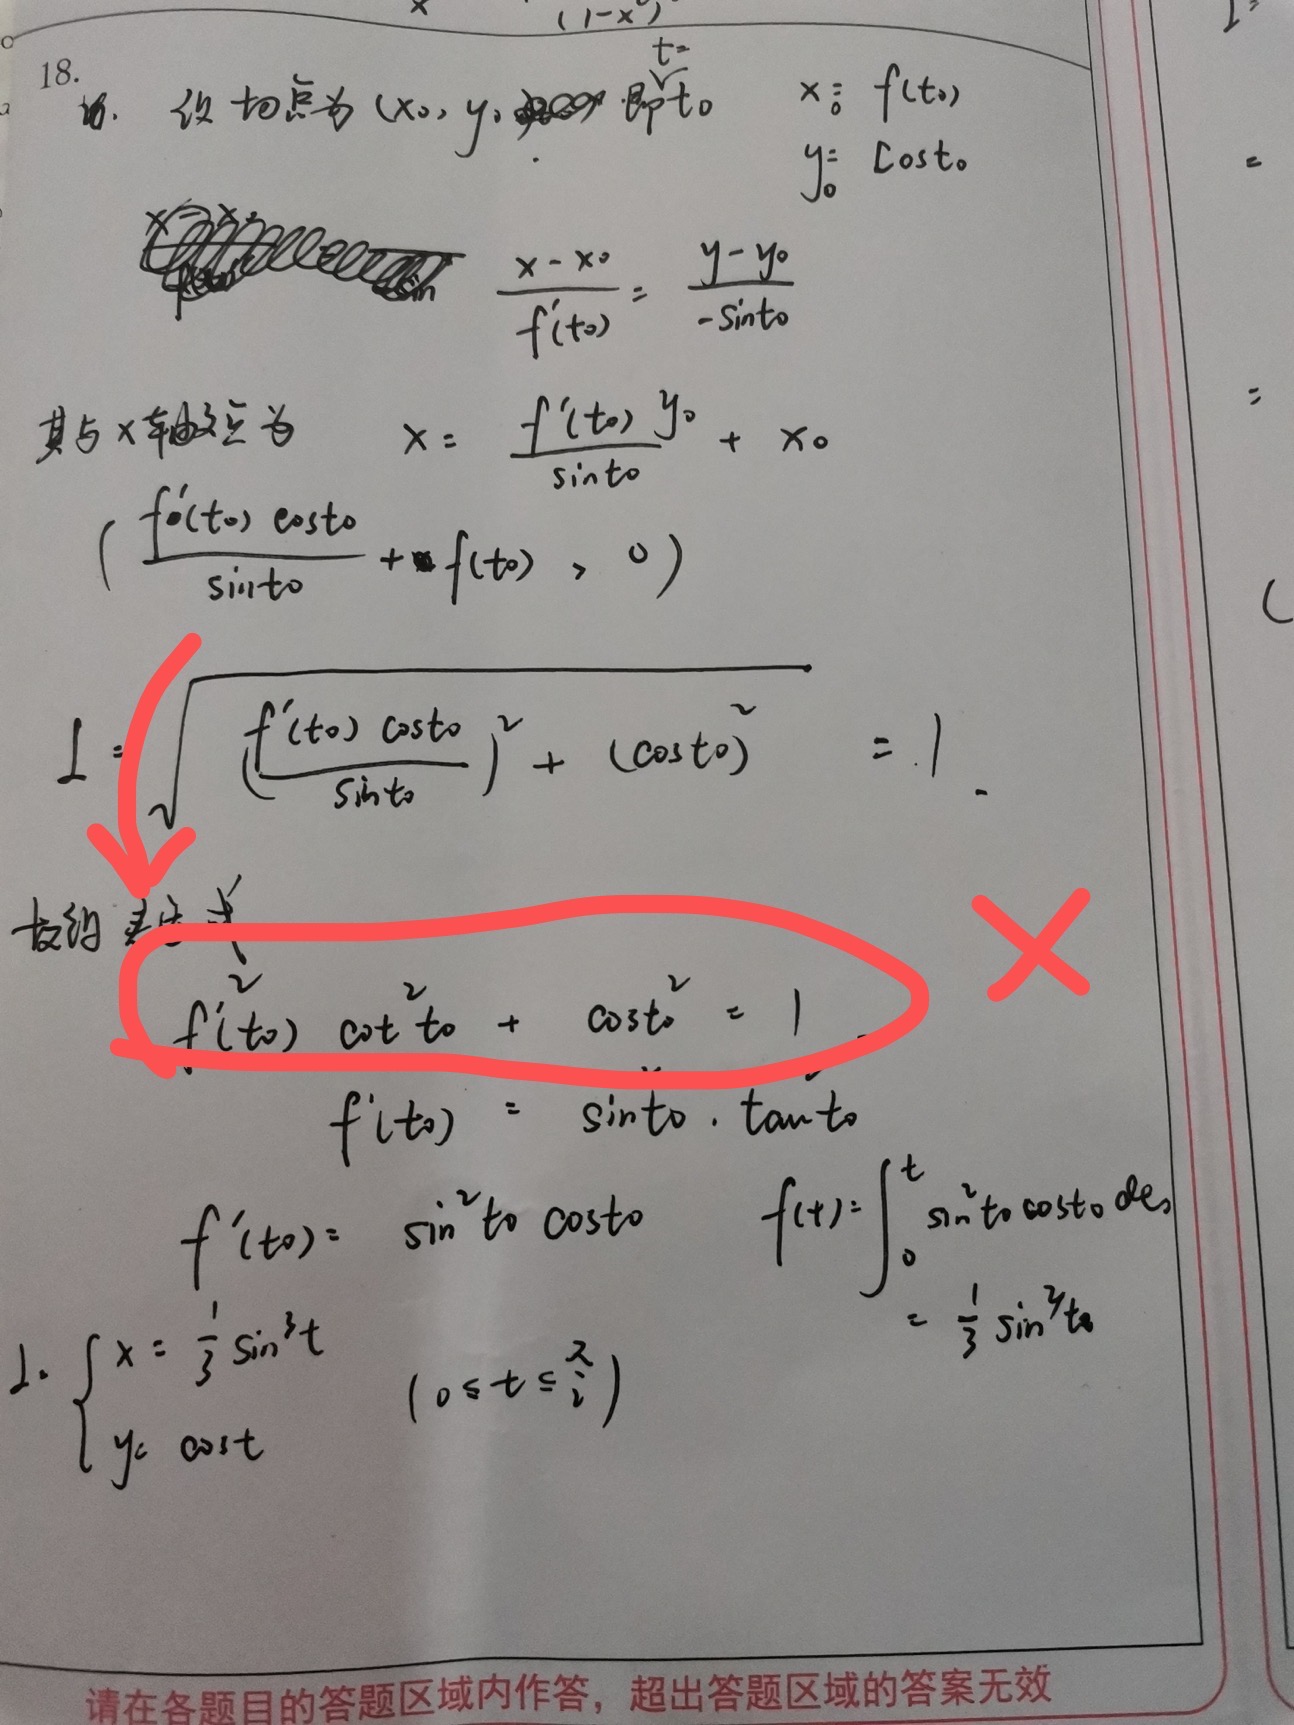 (1-x²)
18.
t=
设切点为(x₀, y₀ 即t₀ x₀= f(t₀)
y₀= cost₀
(x-x₀)/f'(t₀) = (y-y₀)/(-sint₀)
其与x轴交点为 x= f'(t₀)y₀/sint₀ + x₀
(f'(t₀)cost₀/sint₀ + f(t₀), 0)
1 = √((f'(t₀)cost₀/sint₀)² + (cost₀)²) = 1.
f'²(t₀) cot²t₀ + cost₀² = 1
f'(t₀) = sint₀ · tant₀
f'(t₀)= sin²t₀ cost₀ f(t)=∫₀ᵗ sin²t₀ cost₀ dt₀
= 1/3 sin³t₀
1. { x = 1/3 sin³t
y= cost
(0≤t≤π/2)
请在各题目的答题区域内作答，超出答题区域的答案无效